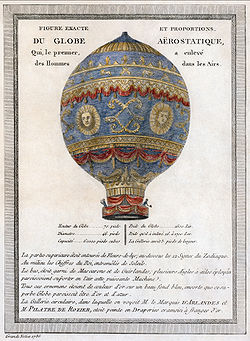 FIGURE EXACTE ET PROPORTIONS
DU GLOBE AËROSTATIQUE,
Qui, le premier, a enlevé
des Hommes dans les Airs.
Hauteur du Globe 70 pieds
Diamètre 46 pieds
Capacité 60000 pieds cubes
Poids du Globe 1600 liv.
La Gallerie avoit 3 pieds de largeur
La partie supérieure étoit entourée de Fleurs-de-lys; au-dessous les 12 Signes du Zodiaque.
Au milieu les Chiffres du Roi, entremêlés de Soleils.
Le bas, étoit garni de Mascarons et de Guirlandes; plusieurs Aigles à ailes éployées
paroissoient enfoncer en l'air cette puissante Machine.
Tous ces ornemens étoient de couleur d'or sur un beau fond bleu,
Globe paroissoit être d'or et d'azur.
La Gallerie circulaire, dans laquelle on voyoit M. le Marquis D'ARLANDES et
M. PILATRE DE ROZIER, étoit peinte en Draperies cramoisi à franges d'or.